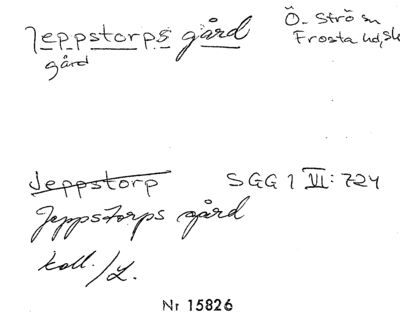 Jeppstorps gård
gård
Ö. Strö sn
Frosta hd, Sk
Jeppstorp SGG 1 VI: 724
Jeppstorps gård
koll. / L.
Nr 15826